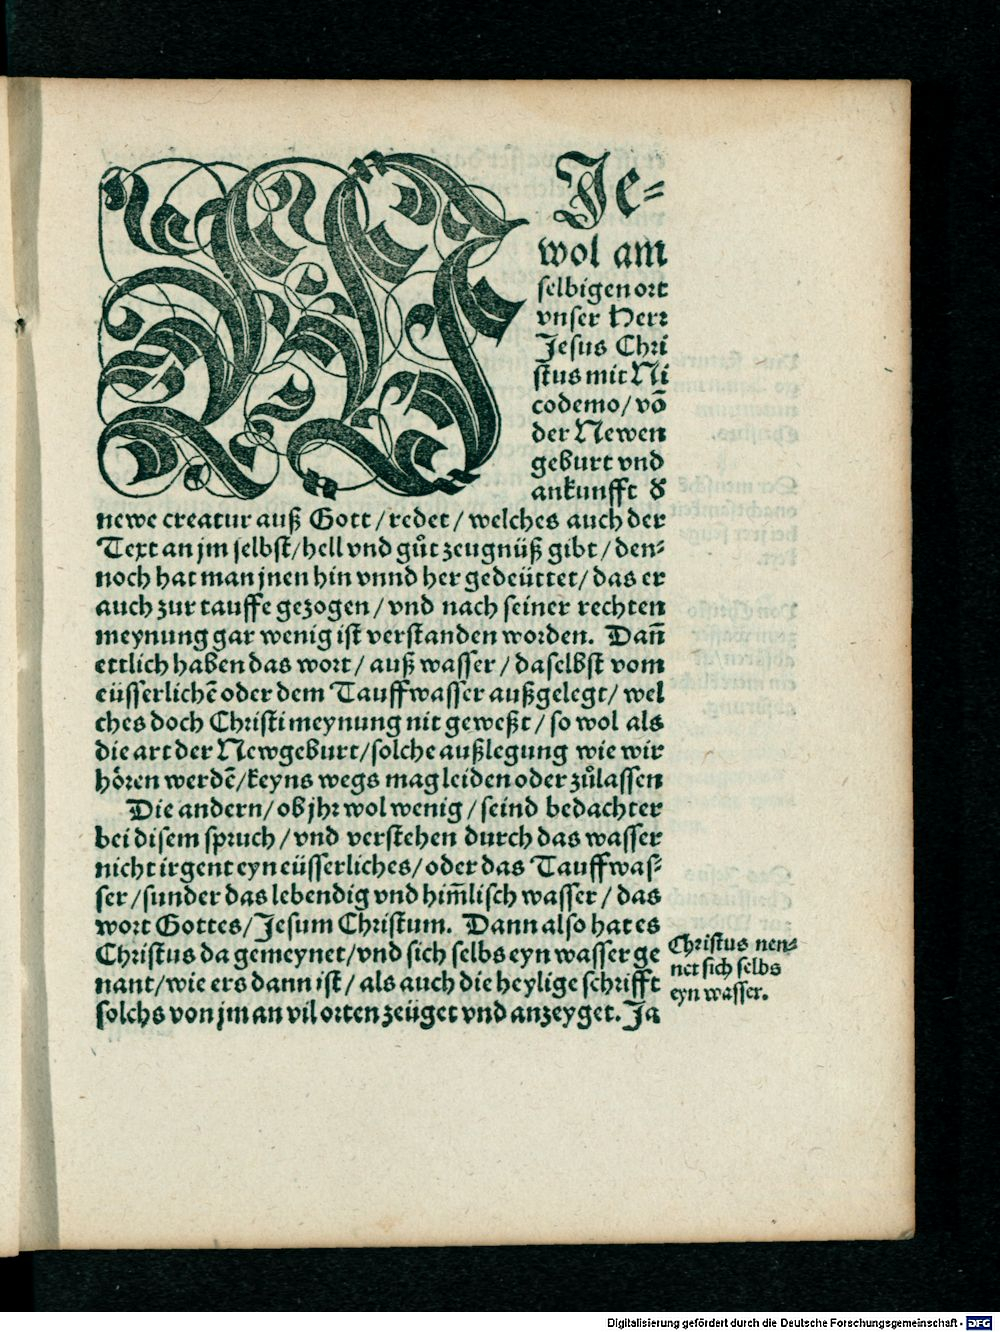 WJe⸗
wol am
selbigen ort
vnser Herr
Jesus Chri
stus mit Ni
codemo/ võ
der Newen
geburt vnd
ankunfft d̕
newe creatur auß Gott/ redet/ welches auch der
Text an jm selbst/ hell vnd gůt zeugnüß gibt/ den⸗
noch hat man jnen hin vnnd her gedeüttet/ das er
auch zur tauffe gezogen/ vnd nach seiner rechten
meynung gar wenig ist verstanden worden. Dañ
ettlich haben das wort/ auß wasser/ daselbst vom
eüsserlichẽ oder dem Tauffwasser außgelegt/ wel
ches doch Christi meynung nit geweßt/ so wol als
die art der Newgeburt/ solche außlegung wie wir
hören werdẽ/ keyns wegs mag leiden oder zůlassen
Die andern/ ob jhr wol wenig/ seind bedachter
bei disem spruch/ vnd verstehen durch das wasser
nicht irgent eyn eüsserliches/ oder das Tauffwas⸗
ser/ sunder das lebendig vnd him̃lisch wasser/ das
wort Gottes/ Jesum Christum. Dann also hat es
Christus da gemeynet/ vnd sich selbs eyn wasser ge
nant/ wie ers dann ist/ als auch die heylige schrifft
solchs von jm an vil orten zeüget vnd anzeyget. Ja
Christus nen⸗
net sich selbs
eyn wasser.
Digitalisierung gefördert durch die Deutsche Forschungsgemeinschaft - DFG